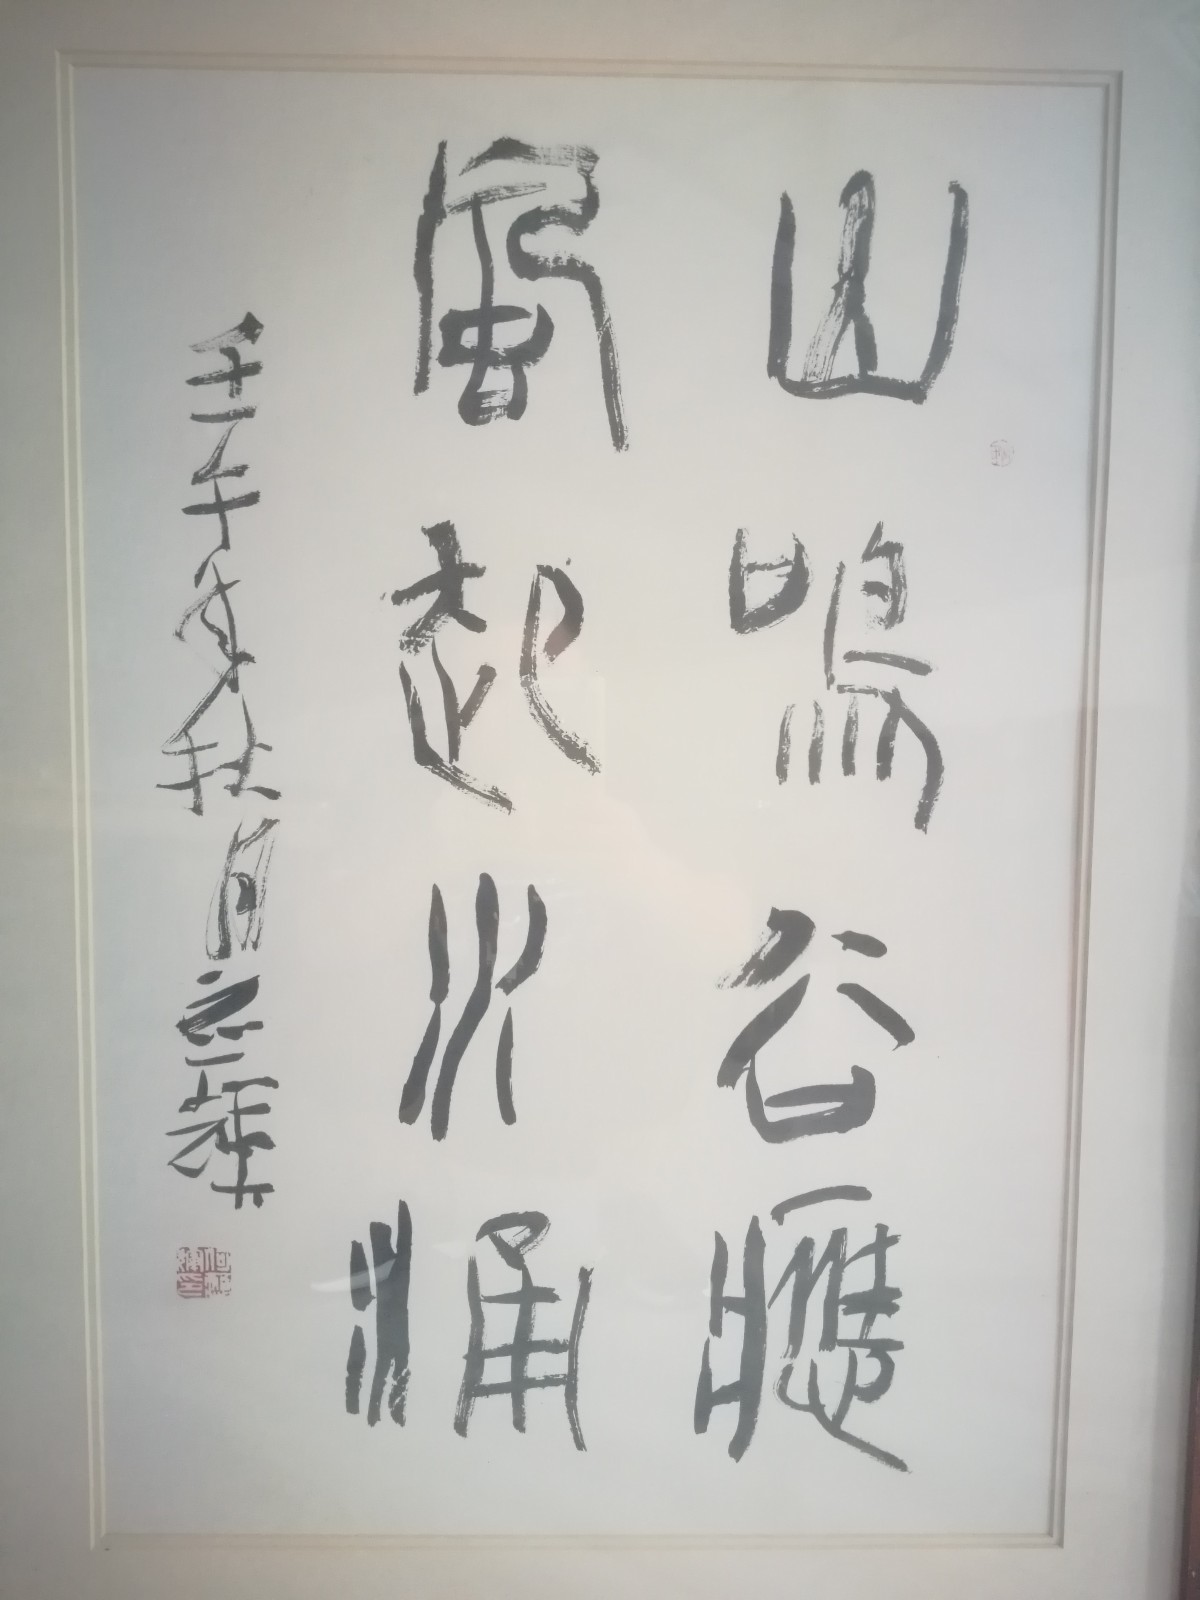 山鳴谷應
風起水涌
壬午年秋月應輝